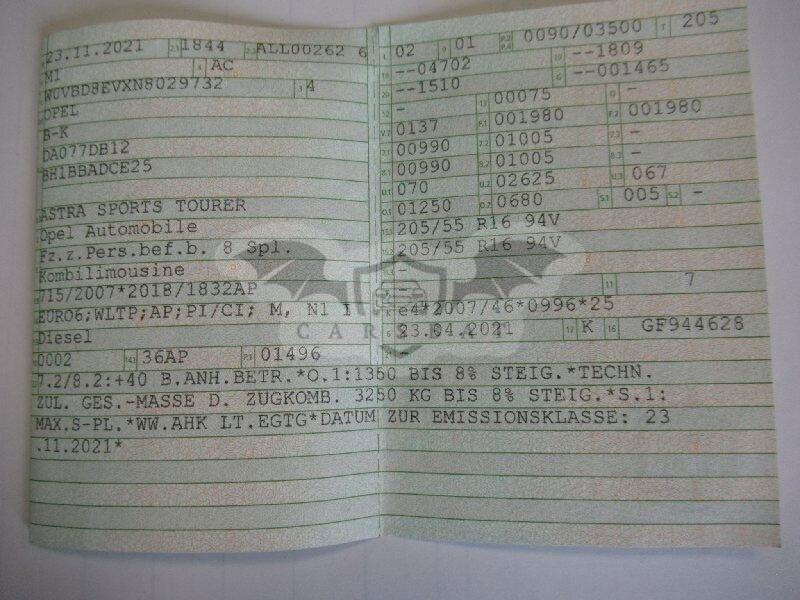 23.11.2021 2.1 1844 2.2 ALL00262 6
M1 4 AC
W0VBD8EVXN8029732 3 4
OPEL
B-K
DA077DB12
BH1BBADCE25
ASTRA SPORTS TOURER
Opel Automobile
Fz.z.Pers.bef.b. 8 Spl.
Kombilimousine
715/2007*2018/1832AP
EURO6;WLTP;AP;PI/CI; M, N1 I
Diesel
0002 14.1 36AP P.1 01496
02 9 01 P.2 P.4 0090/03500 T 205
--04702 --1809
--1510 G --001465
- 13 00075 Q -
0137 F.1 001980 F.2 001980
00990 01005 -
00990 01005 -
070 U.2 02625 U.3 067
01250 O.2 0680 S.1 005 S.2 -
205/55 R16 94V
205/55 R16 94V
-
11 7
e4*2007/46*0996*25
23.04.2021 17 K 16 GF944628
-
7.2/8.2:+40 B.ANH.BETR.*O.1:1350 BIS 8% STEIG.*TECHN.
ZUL. GES.-MASSE D. ZUGKOMB. 3250 KG BIS 8% STEIG.*S.1:
MAX.S-PL.*WW.AHK LT.EGTG*DATUM ZUR EMISSIONSKLASSE: 23
.11.2021*